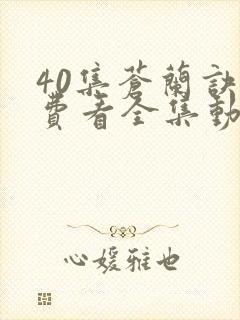 40集蒼蘭訣
費看全集動
心媛雅也